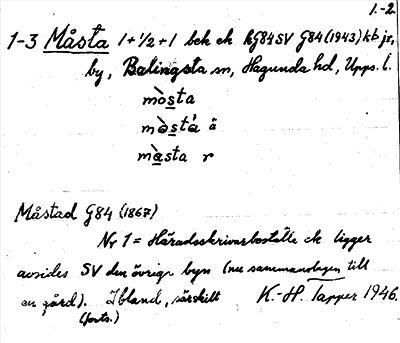 1.-2
1-3 Måsta 1+1/2+1 bek ek kG84SV G84 (1943) kb jr,
by, Balingsta sn, Hagunda hd, Upps. l.
mòsta
mòstá ä
màsta r
Måstad G84 (1867)
Nr 1 = Häradsskrivarboställe ek ligger
avsides SV den övriga byn (nu sammanslagen till
en gård). Ibland, särskilt K.-H. Tapper 1946.
(forts.)